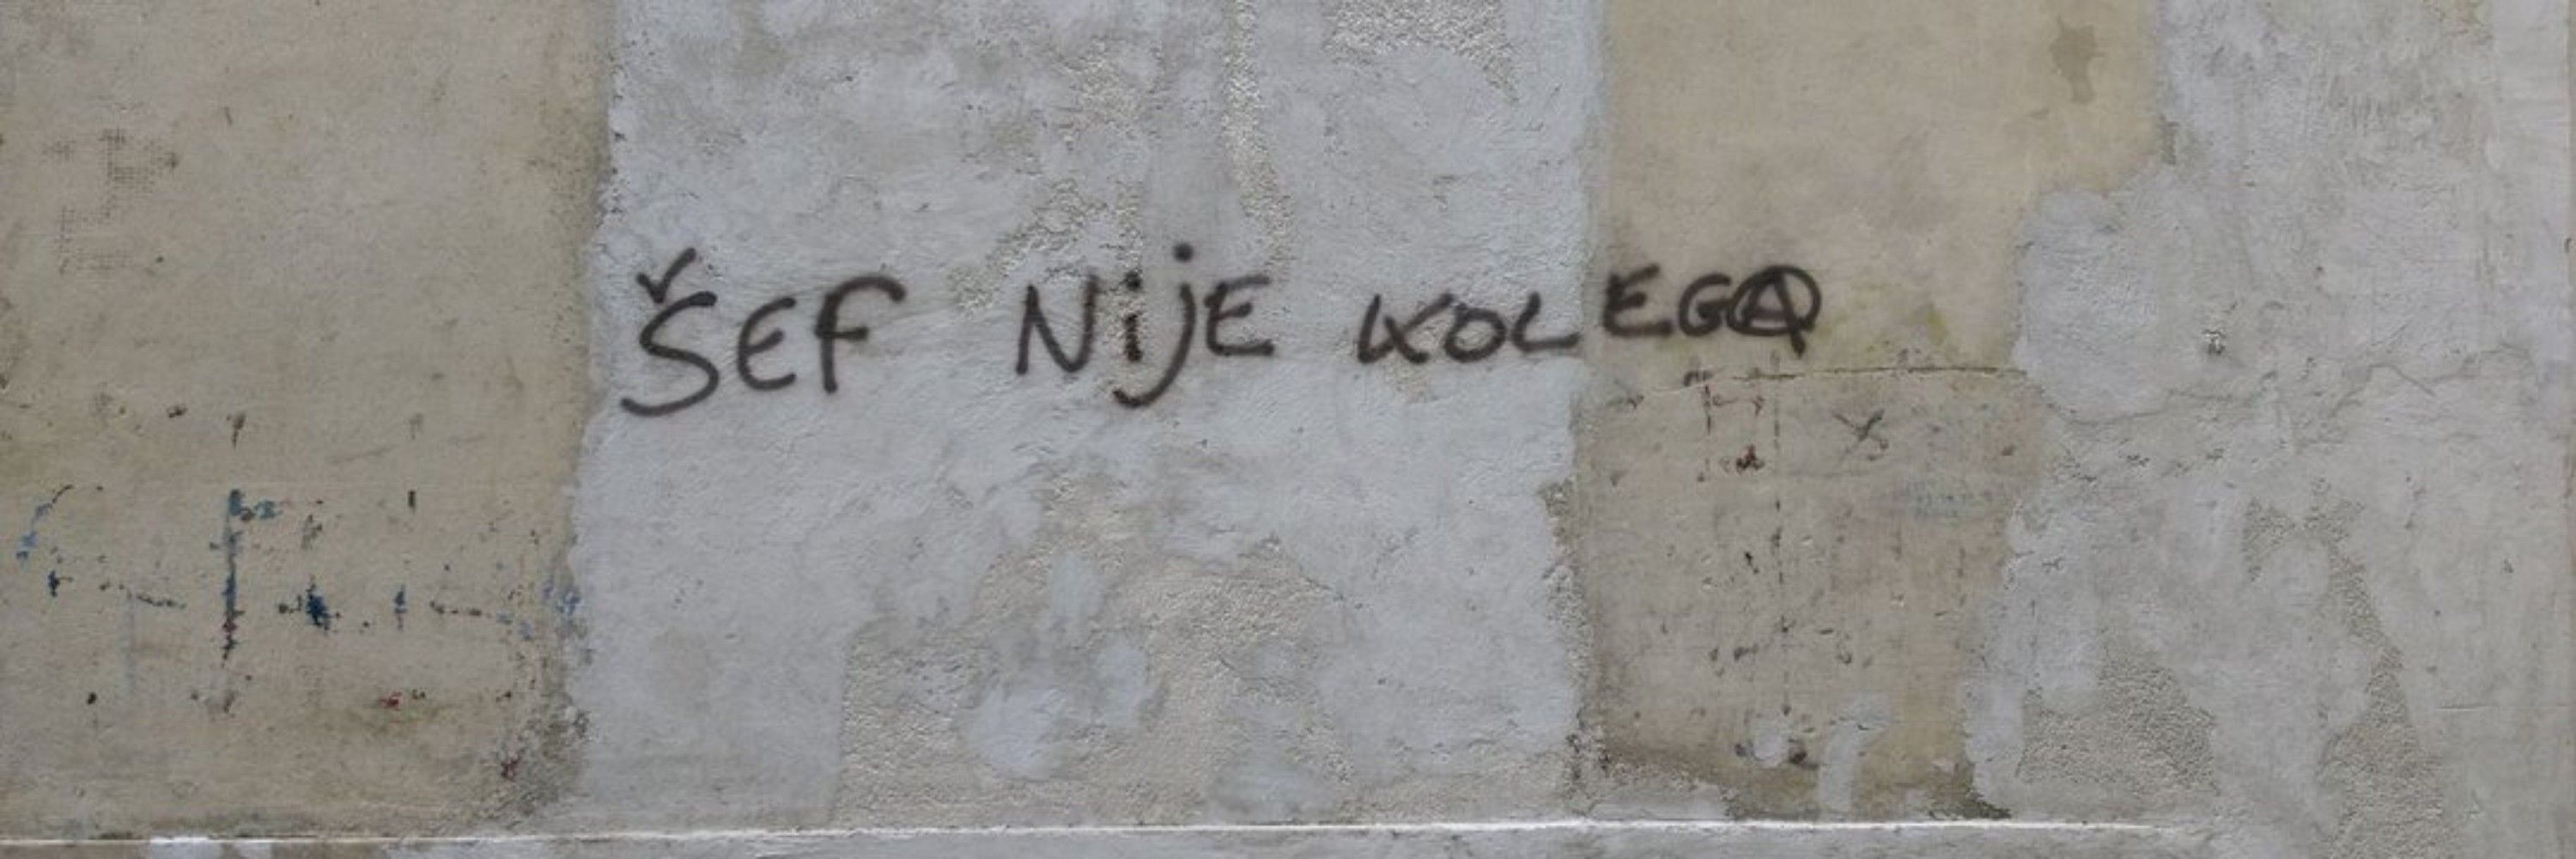 ŠEF NijE KOLEGA